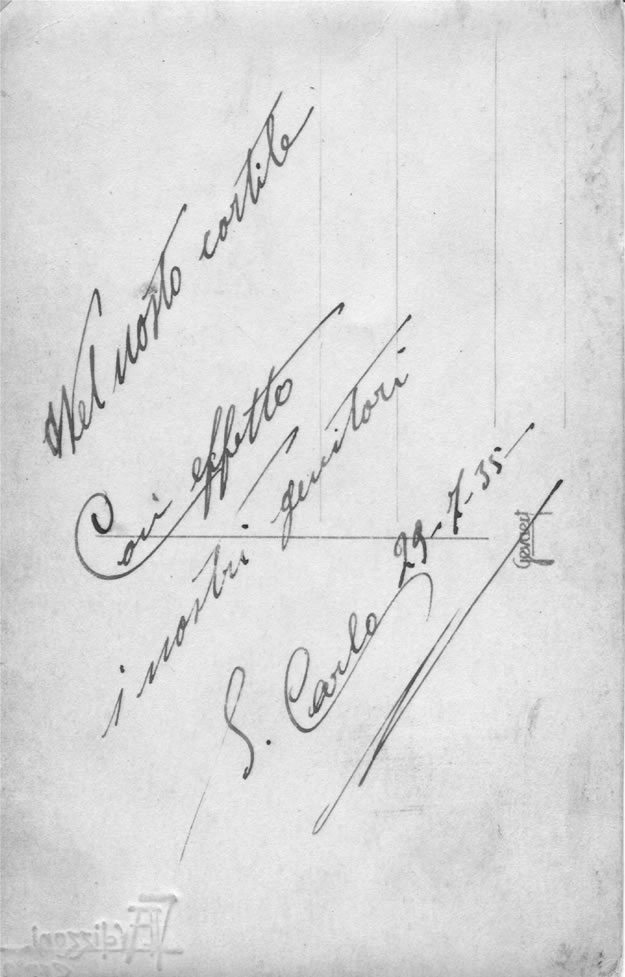 Nel nosto cortile
Con effetto
i nostri genitori
S. Carlo 29-7-35
Gevaert